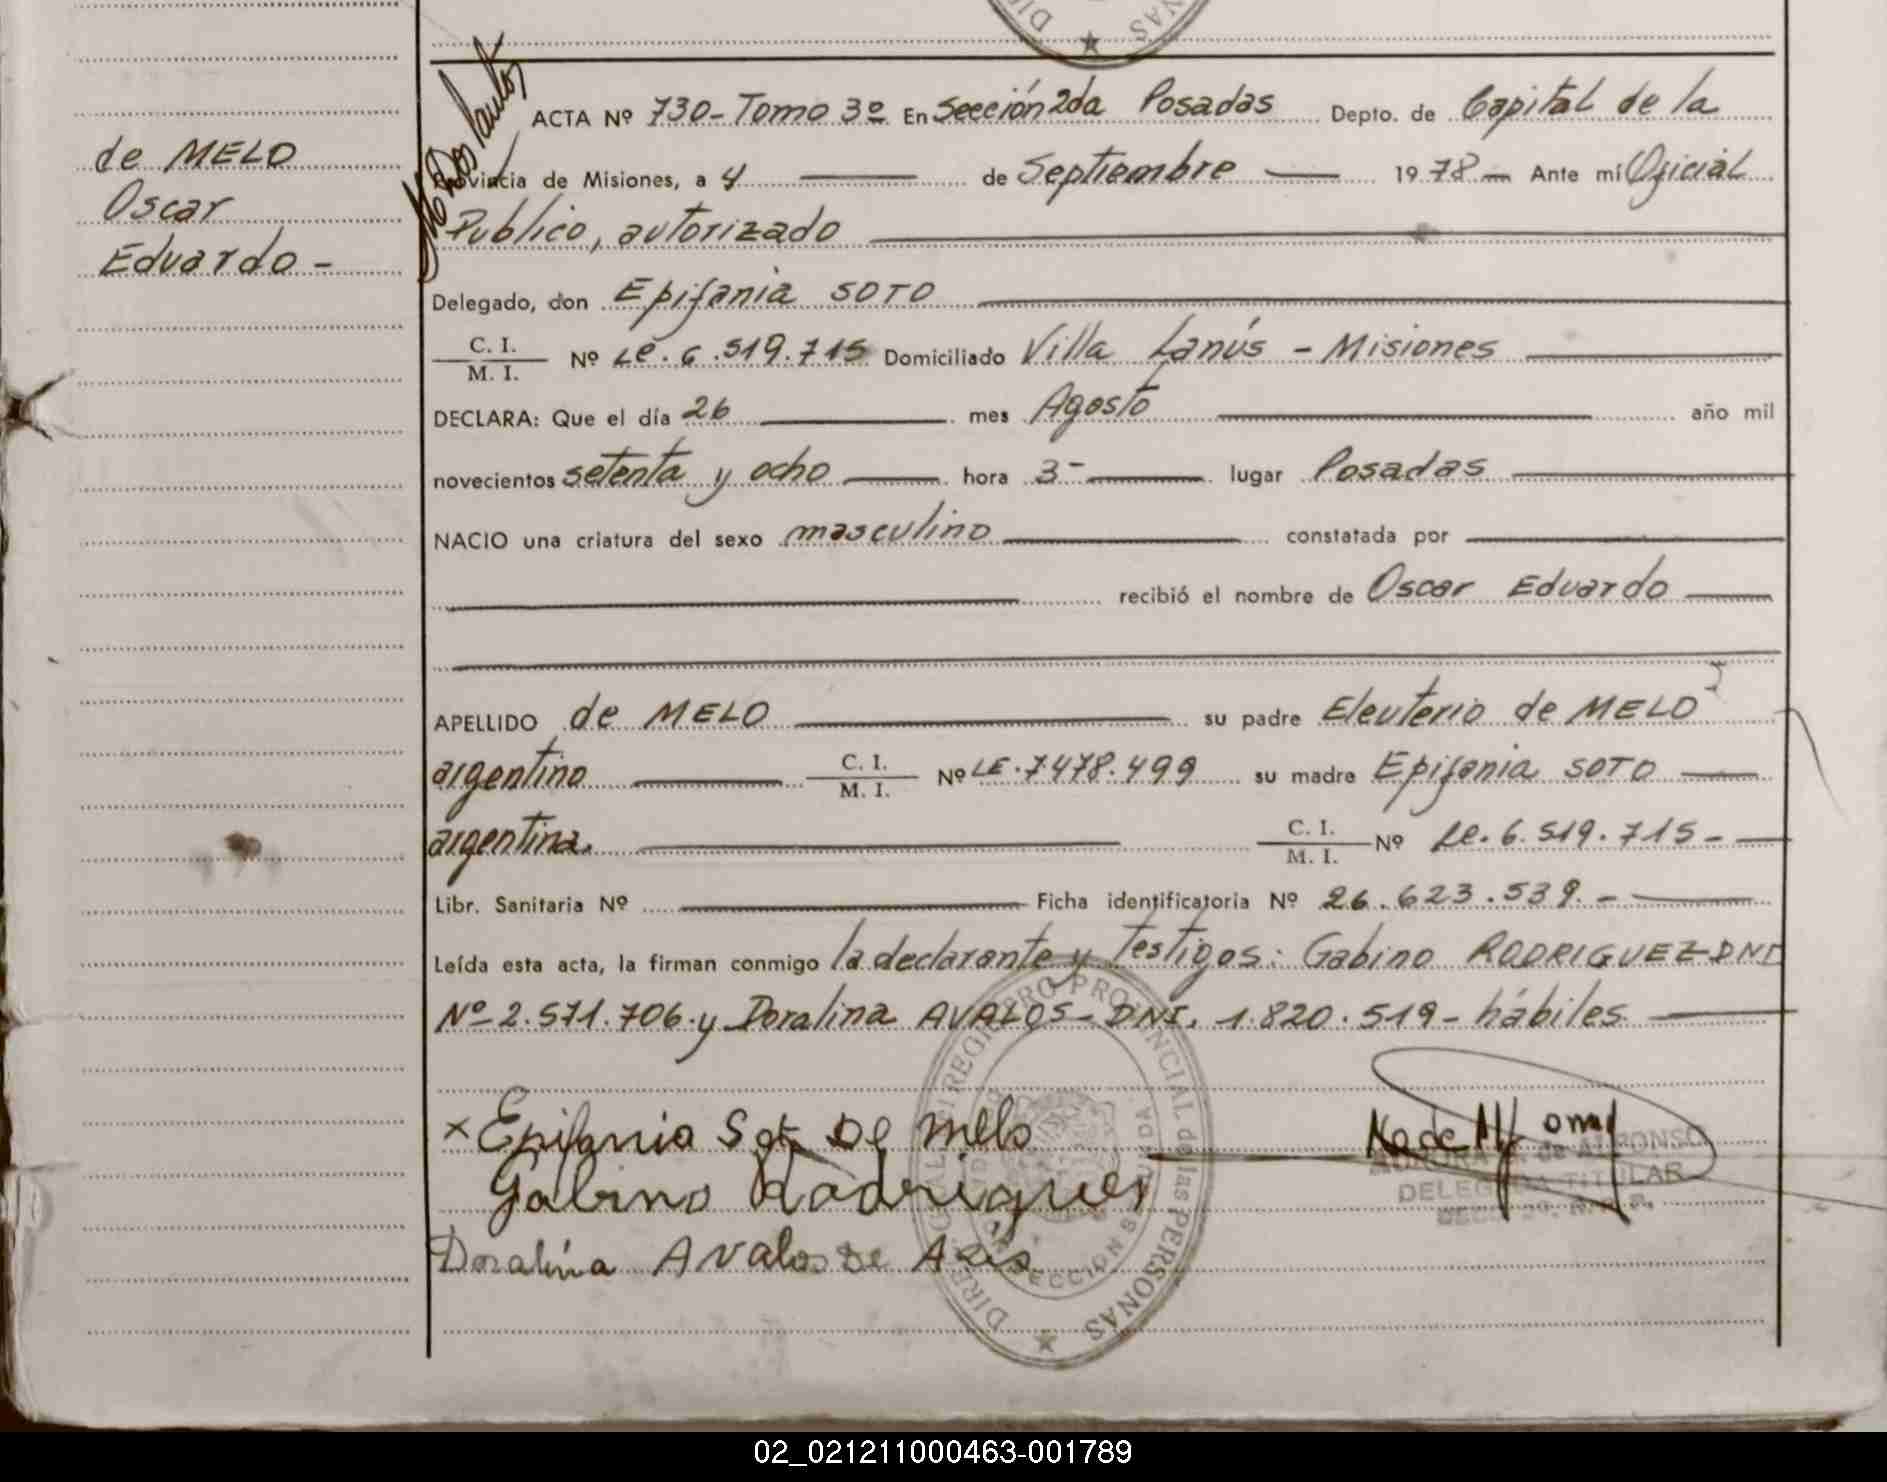 de MELO
Oscar
Eduardo -
ACTA Nº 730 - Tomo 3º En Sección 2da Posadas Depto. de Capital de la
Provincia de Misiones, a 4 de Septiembre 1978 Ante mí Oficial
Publico, autorizado
Delegado, don Epifania SOTO
C. I.
M. I. Nº Le. 6.519.715 Domiciliado Villa Lanús - Misiones
DECLARA: Que el día 26 mes Agosto año mil
novecientos setenta y ocho hora 3- lugar Posadas
NACIO una criatura del sexo masculino constatada por
recibió el nombre de Oscar Eduardo
APELLIDO de MELO su padre Eleuterio de MELO
argentino C. I. M. I. Nº LE. 7478.499 su madre Epifania SOTO
argentina. C. I. M. I. Nº Le. 6.519.715 -
Libr. Sanitaria Nº Ficha identificatoria Nº 26.623.539. -
Leída esta acta, la firman conmigo la declarante y Testigos: Gabino RODRIGUEZ - DNI
Nº 2.571.706. y Doralina AVALOS - DNI. 1.820.519 - hábiles
x Epifania Sot De Melo
Gabino Rodriguez
Doralina Avalos De
de ALFONSO
DELEGADA TITULAR
REGISTRO PROVINCIAL de las PERSONAS
02_021211000463-001789